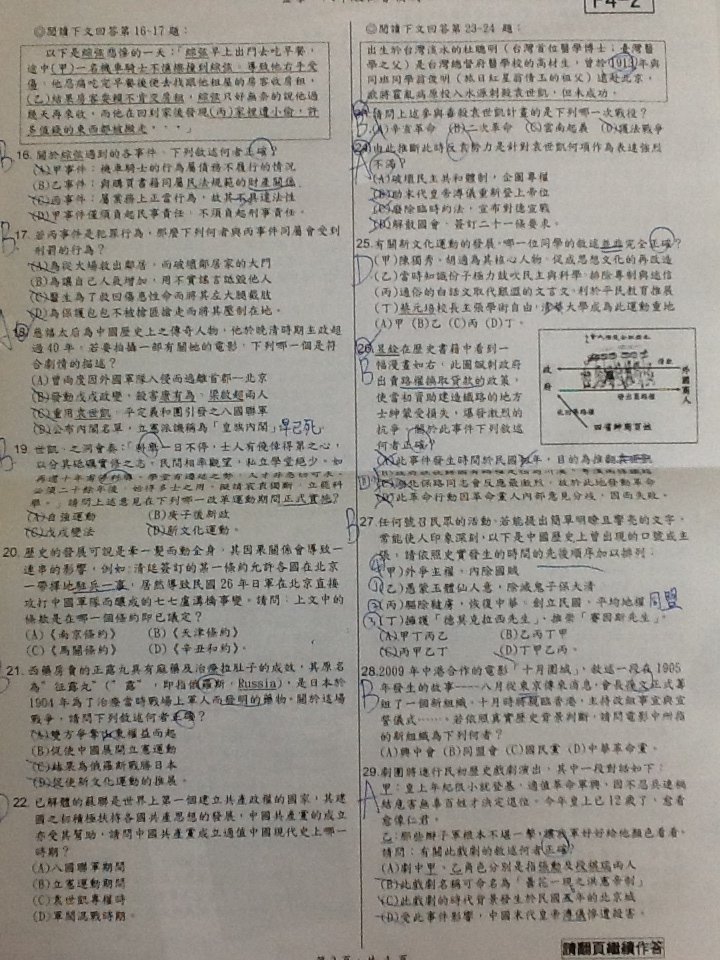 P4-2
◎閱讀下文回答第16-17題：
以下是綜弦悲慘的一天：「綜弦早上出門去吃早餐，
途中(甲)一名機車騎士不慎擦撞到綜弦，導致他右手受
傷，他忍痛吃完早餐後便去找跟他租屋的房客收房租，
(乙)結果房客耍賴不肯交房租，綜弦只好無奈的說他過
幾天再來收，而他在回到家後發現(丙)家裡遭小偷，許
多值錢的東西都被搬走．．．」
16. 關於綜弦遇到的各事件，下列敘述何者正確？
(A)甲事件：機車騎士的行為屬債務不履行的情況
(B)乙事件：與購買書籍同屬民法規範的財產關係
(C)丙事件：屬業務上正當行為，故其不具違法性
(D)甲事件僅須負起民事責任，不須負起刑事責任。
17. 若丙事件是犯罪行為，那麼下列何者與丙事件同屬會受到
刑罰的行為？
(A)為從火場救出鄰居，而破壞鄰居家的大門
(B)為讓自己人氣增加，用不實謠言詆毀他人
(C)醫生為了救回傷患性命而將其左大腿截肢
(D)為保護包包不被搶匪搶走而將其壓制在地。
18 慈禧太后為中國歷史上之傳奇人物，他於晚清時期主政超
過40年，若要拍攝一部有關她的電影，下列哪一個是符
合劇情的描述？
(A)曾兩度因外國軍隊入侵而逃離首都—北京
(B)發動戊戌政變，殺害康有為、梁啟超兩人
(C)重用袁世凱，平定義和團引發之八國聯軍
(D)公布內閣名單，立憲派譏稱為「皇族內閣」早已死
19. 世凱、之洞會奏：「科舉一日不停，士人有僥倖得第之心，
以分其砥礪實修之志，民間相率觀望，私立學堂絕少，如
必須二十餘年後，始得多士之用。擬請宸衷獨斷，立罷科
舉。」請問上述意見在下列哪一改革運動期間正式實施？
(A)自強運動　(B)庚子後新政
(C)戊戌變法　(D)新文化運動。
20. 歷史的發展可說是牽一髮而動全身，其因果關係會導致一
連串的影響，例如：清廷簽訂的某一條約允許各國在北京
一帶擇地駐兵一事，居然導致民國26年日軍在北京直接
攻打中國軍隊而釀成的七七盧溝橋事變。請問：上文中的
條款是在哪一個條約即已議定？
(A)《南京條約》　(B)《天津條約》
(C)《馬關條約》　(D)《辛丑和約》。
21. 西藥房賣的正露丸具有麻藥及治療拉肚子的成效，其原名
為"征露丸"（"露"，即指俄羅斯，Russia），是日本於
1904年為了治療當時戰場上軍人而發明的藥物。關於這場
戰爭，請問下列敘述何者正確？
(A)雙方爭奪山東權益而起
(B)促使中國展開立憲運動
(C)結果為俄羅斯戰勝日本
(D)促使新文化運動的推展。
22. 已解體的蘇聯是世界上第一個建立共產政權的國家，其建
國之初積極扶持各國共產思想的發展，中國共產黨的成立
亦受其幫助，請問中國共產黨成立適值中國現代史上哪一
時期？
(A)八國聯軍期間
(B)立憲運動期間
(C)袁世凱專權時
(D)軍閥混戰時期。
◎閱讀下文回答第23-24 題：
出生於台灣淡水的杜聰明（台灣首位醫學博士；臺灣醫
學之父）是台灣總督府醫學校的高材生，曾於1913年與
同班同學翁俊明（旅日紅星翁倩玉的祖父）遠赴北京，
欲將霍亂病原投入水源刺殺袁世凱，但未成功。
請問上述參與毒殺袁世凱計畫的是下列哪一次戰役？
(A)辛亥革命　(B)二次革命　(C)雲南起義　(D)護法戰爭
24. 由此推斷此時反袁勢力是針對袁世凱何項作為表達強烈
不滿？
(A)破壞民主共和體制，企圖專權
(B)助末代皇帝溥儀重新登上帝位
(C)廢除臨時約法，宣布對德宣戰
(D)解散國會，簽訂二十一條要求。
25. 有關新文化運動的發展，哪一位同學的敘述並非完全正確？
(甲)陳獨秀、胡適為其核心人物，促成思想文化的再改造
(乙)當時知識份子極力鼓吹民主與科學，排除專制與迷信
(丙)通俗的白話文取代艱澀的文言文，利於平民教育推展
(丁)蔡元培校長主張學術自由，清華大學成為此運動重地
(A)甲 (B)乙 (C)丙 (D)丁。
26. 昱銓在歷史書籍中看到一
幅漫畫如右，此圖諷刺政府
出賣路權換取貸款的政策，
使當初資助建造鐵路的地方
士紳蒙受損失，爆發激烈的
抗爭，關於此事件下列敘述
何者正確？
政府
借款
外國商人
四省紳商百姓
(C)湖北保路同志會反應最激烈，故於此地發動革命
(D)此革命行動因革命黨人內部意見分歧，因而失敗。
27. 任何號召民眾的活動，若能提出簡單明瞭且響亮的文字，
常能使人印象深刻，以下是中國歷史上曾出現的口號或主
張，請依照史實發生的時間的先後順序加以排列：
(甲)外爭主權，內除國賊
(乙)憑蒙玉體仙人意，除滅鬼子保大清
(丙)驅除韃虜，恢復中華，創立民國，平均地權 同盟
(丁)擁護「德莫克拉西先生」、推崇「賽因斯先生」。
(A)甲丁丙乙　(B)乙丙丁甲
(C)丙甲乙丁　(D)丁甲乙丙。
28. 2009年中港合作的電影「十月圍城」，敘述一段在1905
年發生的故事……八月從東京傳來消息，會長孫文正式籌
組了一個新組織，十月時將親臨香港，主持改組事宜與宣
誓儀式……。若依照真實歷史背景判斷，請問電影中所指
的新組織為下列何者？
(A)興中會 (B)同盟會 (C)國民黨 (D)中華革命黨。
29. 劇團將進行民初歷史戲劇演出，其中一段對話如下：
甲：皇上年紀很小就登基，適值革命軍興，因不忍兵連禍
結危害無辜百姓才決定退位。今年皇上已12歲了，愈看
愈像仁君。
乙：那些辮子軍根本不堪一擊，讓我軍好好給他顏色看看。
請問：有關此戲劇的敘述何者正確？
(A)劇中甲、乙角色分別是指張勳及段祺瑞兩人
(B)此戲劇名稱可命名為「曇花一現之洪憲帝制」
(C)此戲劇的時代背景發生於民國五年的北京城
(D)受此事件影響，中國末代皇帝溥儀慘遭殺害。
請翻頁繼續作答